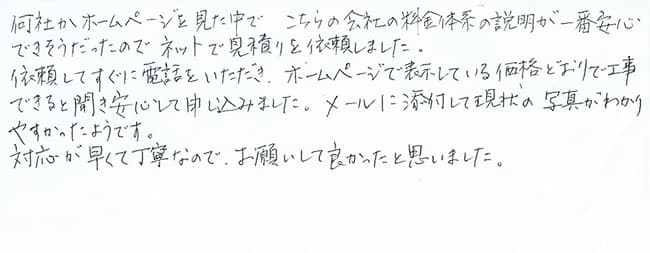 何社かホームページを見た中で こちらの会社の料金体系の説明が一番安心
できそうだったのでネットで見積りを依頼しました。
依頼してすぐに電話をいただき、ホームページで表示している価格どおりで工事
できると聞き安心して申し込みました。メールに添付して現状の写真がわかり
やすかったようです。
対応が早くて丁寧なので、お願いして良かったと思いました。